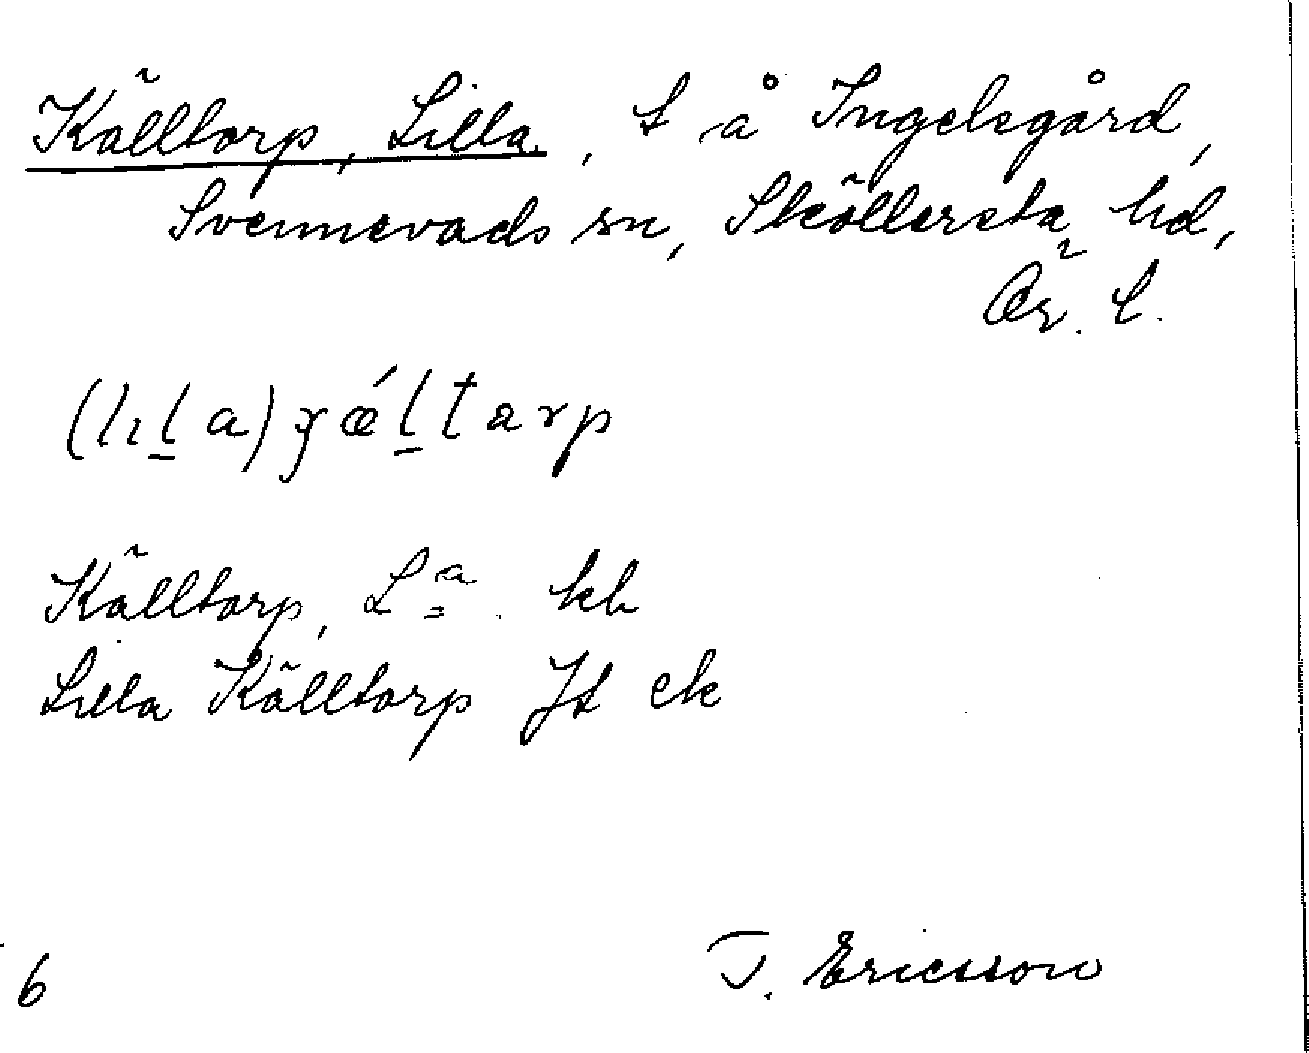 Källtorp, Lilla, t å Ingelsgård,
Svennevads sn, Sköllersta hd,
Ör. l.
(lıḻa) ɟǽḻtarp
Källtorp, Lª kb
Lilla Källtorp Jt ek
6
T. Ericsson